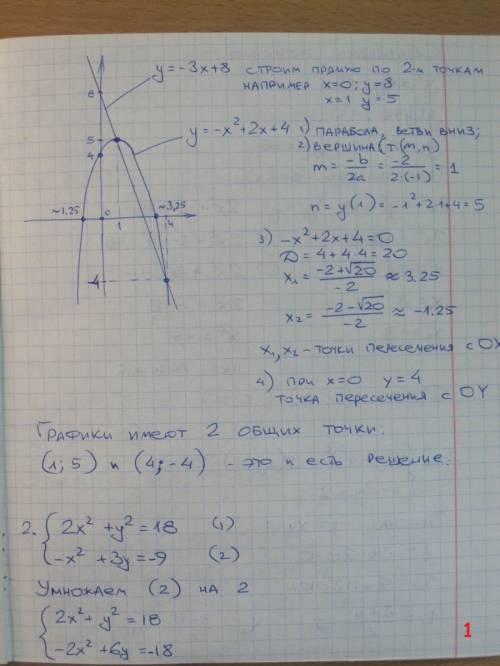 y = -3x+8 строим прямую по 2-м точкам
например x=0; y=8
x=1 y=5
8
y = -x² + 2x + 4 1) парабола, ветви вниз;
2) вершина (т. (m, n)
5
4
m = -b/2a = -2/2·(-1) = 1
n = y(1) = -1² + 2·1 + 4 = 5
~1,25 0 1 ~3,25 4
3) -x² + 2x + 4 = 0
D = 4 + 4·4 = 20
x₁ = -2+√20/-2 ≈ 3.25
-4
x₂ = -2-√20/-2 ≈ -1.25
x₁, x₂ - точки пересечения с OX
4) при x=0 y=4
точка пересечения с OY
Графики имеют 2 общих точки.
(1; 5) и (4; -4) - это и есть решение.
2. { 2x² + y² = 18 (1)
-x² + 3y = -9 (2)
Умножаем (2) на 2
{ 2x² + y² = 18
-2x² + 6y = -18
1